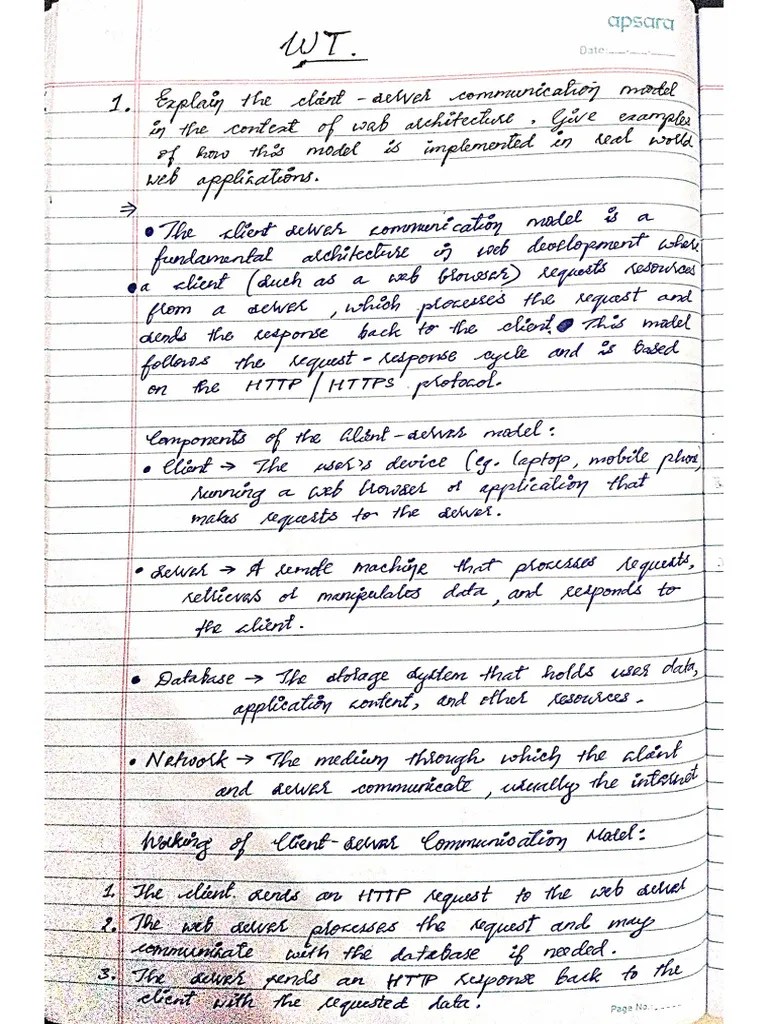 apsara
Date:
WT.
1. Explain the client-server communication model
in the context of web architecture. Give examples
of how this model is implemented in real world
web applications.
⇒
• The client server communication model is a
fundamental architecture in web development where
• a client (such as a web browser) requests resources
from a server, which processes the request and
sends the response back to the client. • This model
follows the request-response cycle and is based
on the HTTP/HTTPS protocol.
Components of the Client-server model:
• Client → The user's device (eg. laptop, mobile phone)
running a web browser or application that
makes requests to the server.
• Server → A remote machine that processes requests,
retrieves or manipulates data, and responds to
the client.
• Database → The storage system that holds user data,
application content, and other resources.
• Network → The medium through which the client
and server communicate, usually the internet
Working of Client-Server Communication Model:
1. The client sends an HTTP request to the web server
2. The web server processes the request and may
communicate with the database if needed.
3. The server sends an HTTP response back to the
client with the requested data.
Page No.: